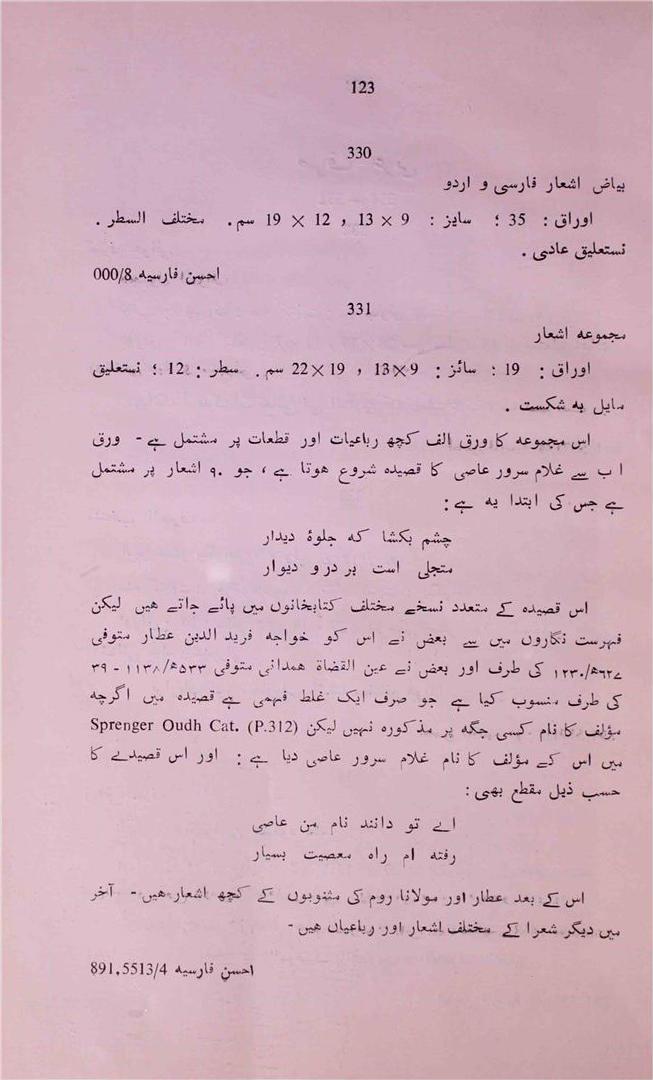 123
330
بیاض اشعار فارسی و اردو
اوراق : 35 ؛ سایز : 9 × 13 ، 12 × 19 سم. مختلف السطر .
نستعلیق عادی .
احسن فارسیه 000/8
331
مجموعه اشعار
اوراق : 19 ؛ سائز : 9×13 ، 19×22 سم . سطر : 12 ؛ نستعلیق
مایل به شکست .
اس مجموعه کا ورق الف کچھ رباعیات اور قطعات پر مشتمل ہے - ورق
ا ب سے غلام سرور عاصی کا قصیدہ شروع ہوتا ہے ، جو ۹۰ اشعار پر مشتمل
ہے جس کی ابتدا یہ ہے :
چشم بکشا که جلوۂ دیدار
متجلی است بر در و دیوار
اس قصیدہ کے متعدد نسخے مختلف کتابخانوں میں پائے جاتے ہیں لیکن
فہرست نگاروں میں سے بعض نے اس کو خواجہ فرید الدین عطار متوفی
۶۲۷ھ/۱۲۳۰ کی طرف اور بعض نے عین القضاۃ ہمدانی متوفی ۵۳۳ھ/۱۱۳۸ - ۳۹
کی طرف منسوب کیا ہے جو صرف ایک غلط فہمی ہے قصیدہ میں اگرچہ
مؤلف کا نام کسی جگہ پر مذکورہ نہیں لیکن Sprenger Oudh Cat. (P.312)
میں اس کے مؤلف کا نام غلام سرور عاصی دیا ہے : اور اس قصیدے کا
حسب ذیل مقطع بھی :
اے تو دانند نام من عاصی
رفته ام راه معصیت بسیار
اس کے بعد عطار اور مولانا روم کی مثنویوں کے کچھ اشعار ہیں - آخر
میں دیگر شعرا کے مختلف اشعار اور رباعیاں ہیں -
احسن فارسیه 891,5513/4